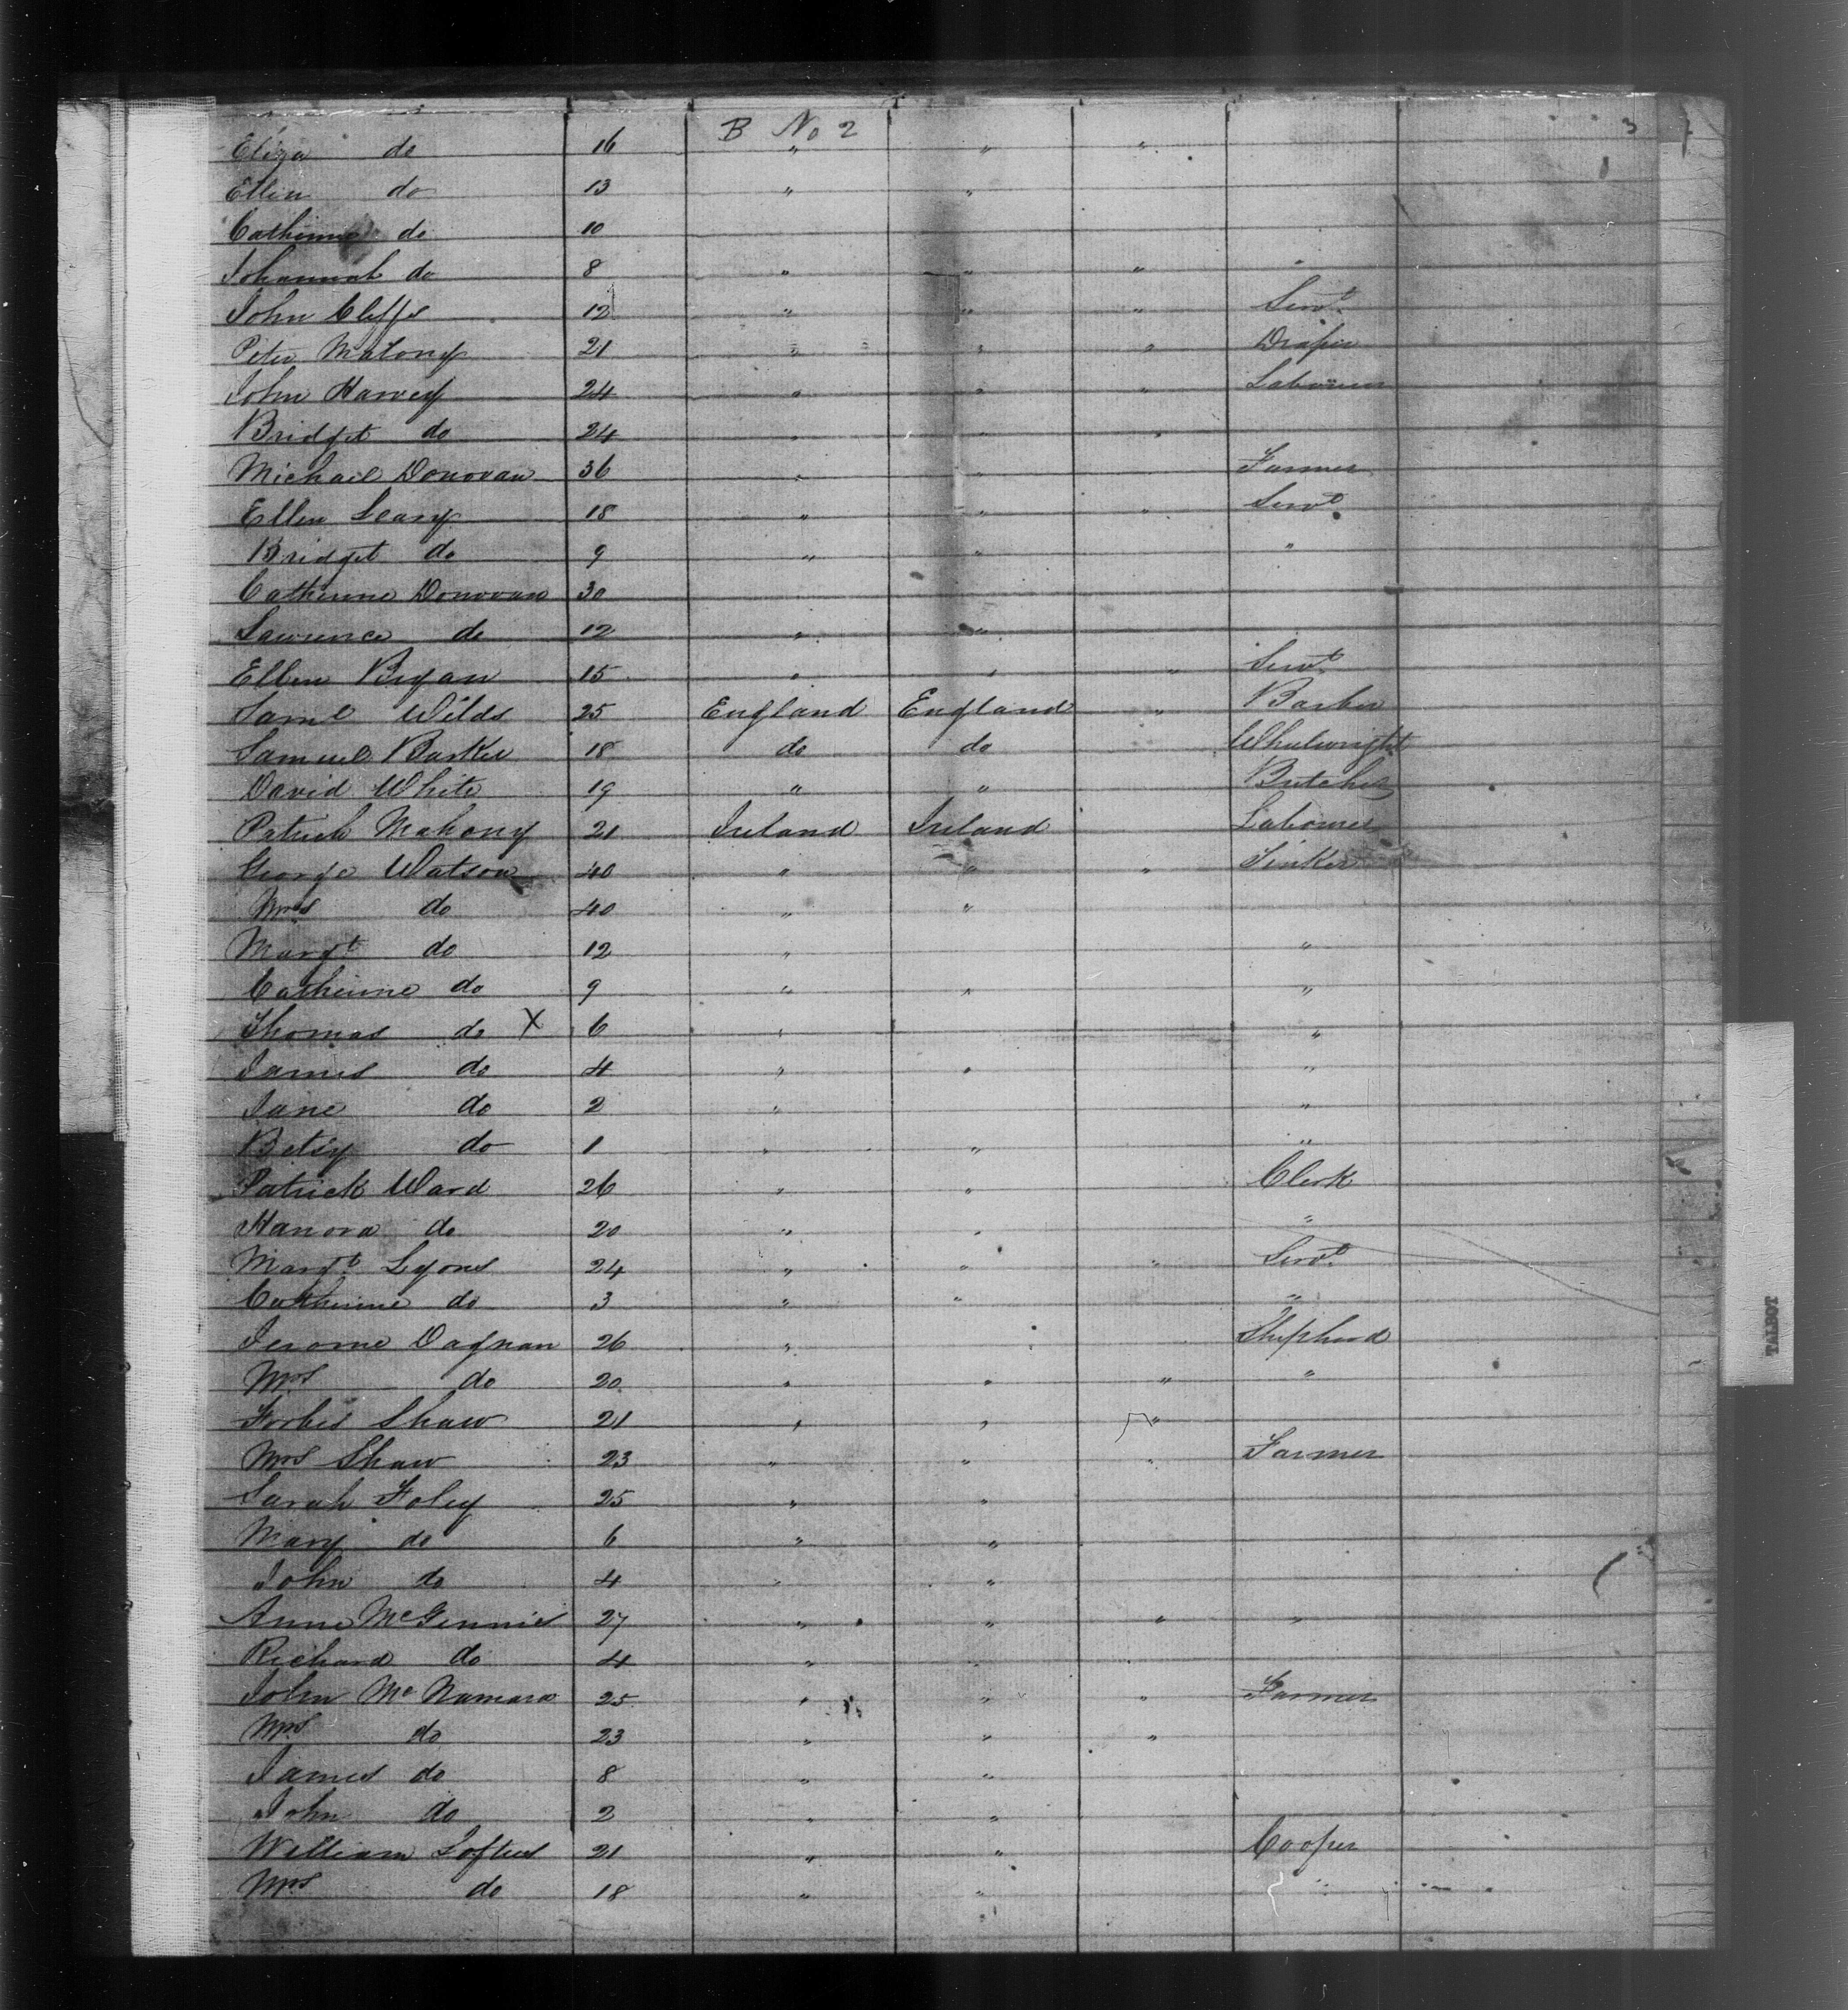 B No 2 3
Eliza do 16 " " "
Ellen do 13 " "
Catherine do 10
Johannah do 8 " " " "
John Cliffs 12 " " " Servt.
Peter Malony 21 " " " Draper
John Harvey 24 " " " Labourer
Bridget do 24 " " "
Michael Donovan 36 " " Farmer
Ellen Leary 18 " " " Servt.
Bridget do 9 " " "
Catherine Donovan 30
Lawrence do 12 " "
Ellen Bryan 15 " " " Servt.
Saml Wilds 25 England England "
Samuel Barker 18 do do Whelwright
David White 19 " " Butcher
Patrick Mahony 21 Ireland Ireland Labourer
George Watson 40 " " " Tinker
Mrs do 40 " "
Margt do 12 " "
Catherine do 9 " " "
Thomas do X 6 " "
James do 4 " " "
Jane do 2 " "
Betsy do 1 " " "
Patrick Ward 26 " " Clerk
Hanora do 20 " " "
Margt. Lyons 24 " " " Servt.
Catherine do 3 " " "
Jerome Dagnan 26 " " Shepherd
Mrs do 20 " " " "
Forbes Shaw 21 " " "
Mrs Shaw 23 " " " Farmer
Sarah Foley 25 " "
Mary do 6 " "
John do 4 " "
Anne McGennis 27 " " " "
Richard do 4 " "
John McNamara 25 " " " Farmer
Mrs do 23 " " "
James do 8 " "
John do 2 " "
William Loftus 21 " " Cooper
Mrs do 18 " " "
TALBOT